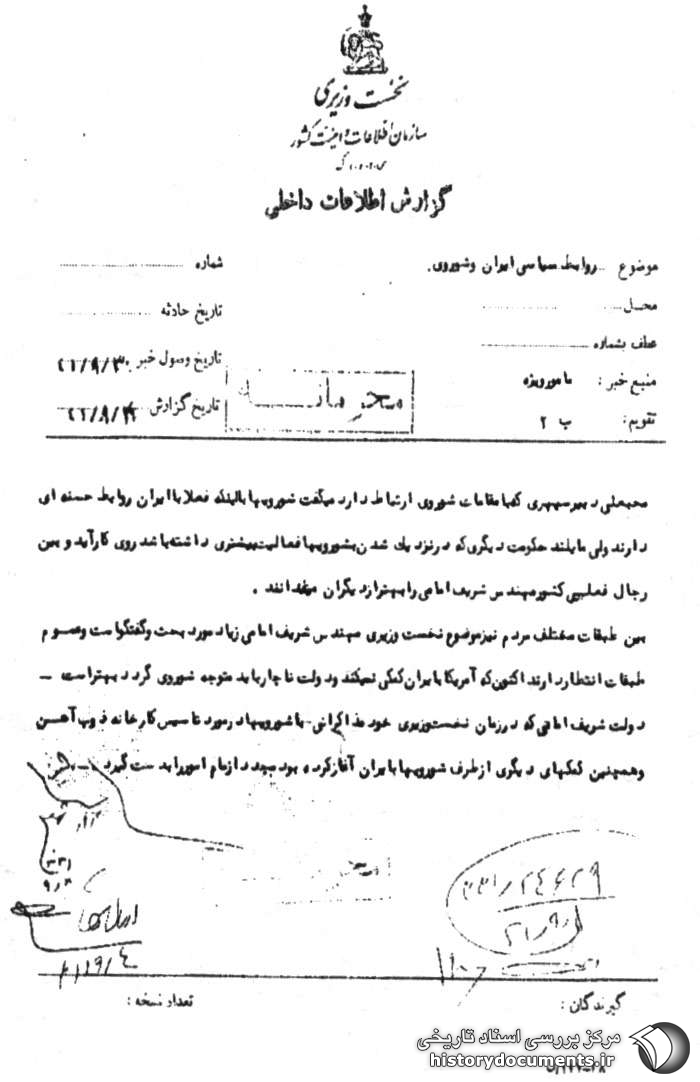 نخست وزیری
سازمان اطلاعات و امنیت کشور
گزارش اطلاعات داخلی
موضوع روابط سیاسی ایران وشوروی.
شماره
محل
تاریخ حادثه
عطف بشماره
تاریخ وصول خبر ۴۲/۹/۳۰
منبع خبر : مامور ویژه
تاریخ گزارش
محرمانه
تقویم: ب ۲
دبیرسپهری که با مقامات شوروی ارتباط دارد میگفت شورویها با اینکه فعلا با ایران روابط حسنه ای
دارند ولی مایلند حکومت دیگری که در نزدیك شدن بشورویها فعالیت بیشتری داشته باشد روی کارآید و بین
رجال فعلی کشور مهندس شریف امامی را بهتر از دیگران میدانند .
بین طبقات مختلف مردم نیز موضوع نخست وزیری مهندس شریف امامی زیاد مورد بحث وگفتگو است وعموم
طبقات انتظار دارند اکنون که آمریکا با ایران کمکی نمیکند و دولت ناچار باید متوجه شوروی گردد بهتر است -
دولت شریف امامی که در زمان نخست وزیری خود مذاکراتی با شورویها در مورد تاسیس کارخانه ذوب آهن
وهمچنین کمکهای دیگری از طرف شورویها با ایران آغاز کرده بود مجددا زمام امور را بدست گیرد
گیرندگان :
تعداد نسخه :
مرکز بررسی اسناد تاریخی
historydocuments.ir